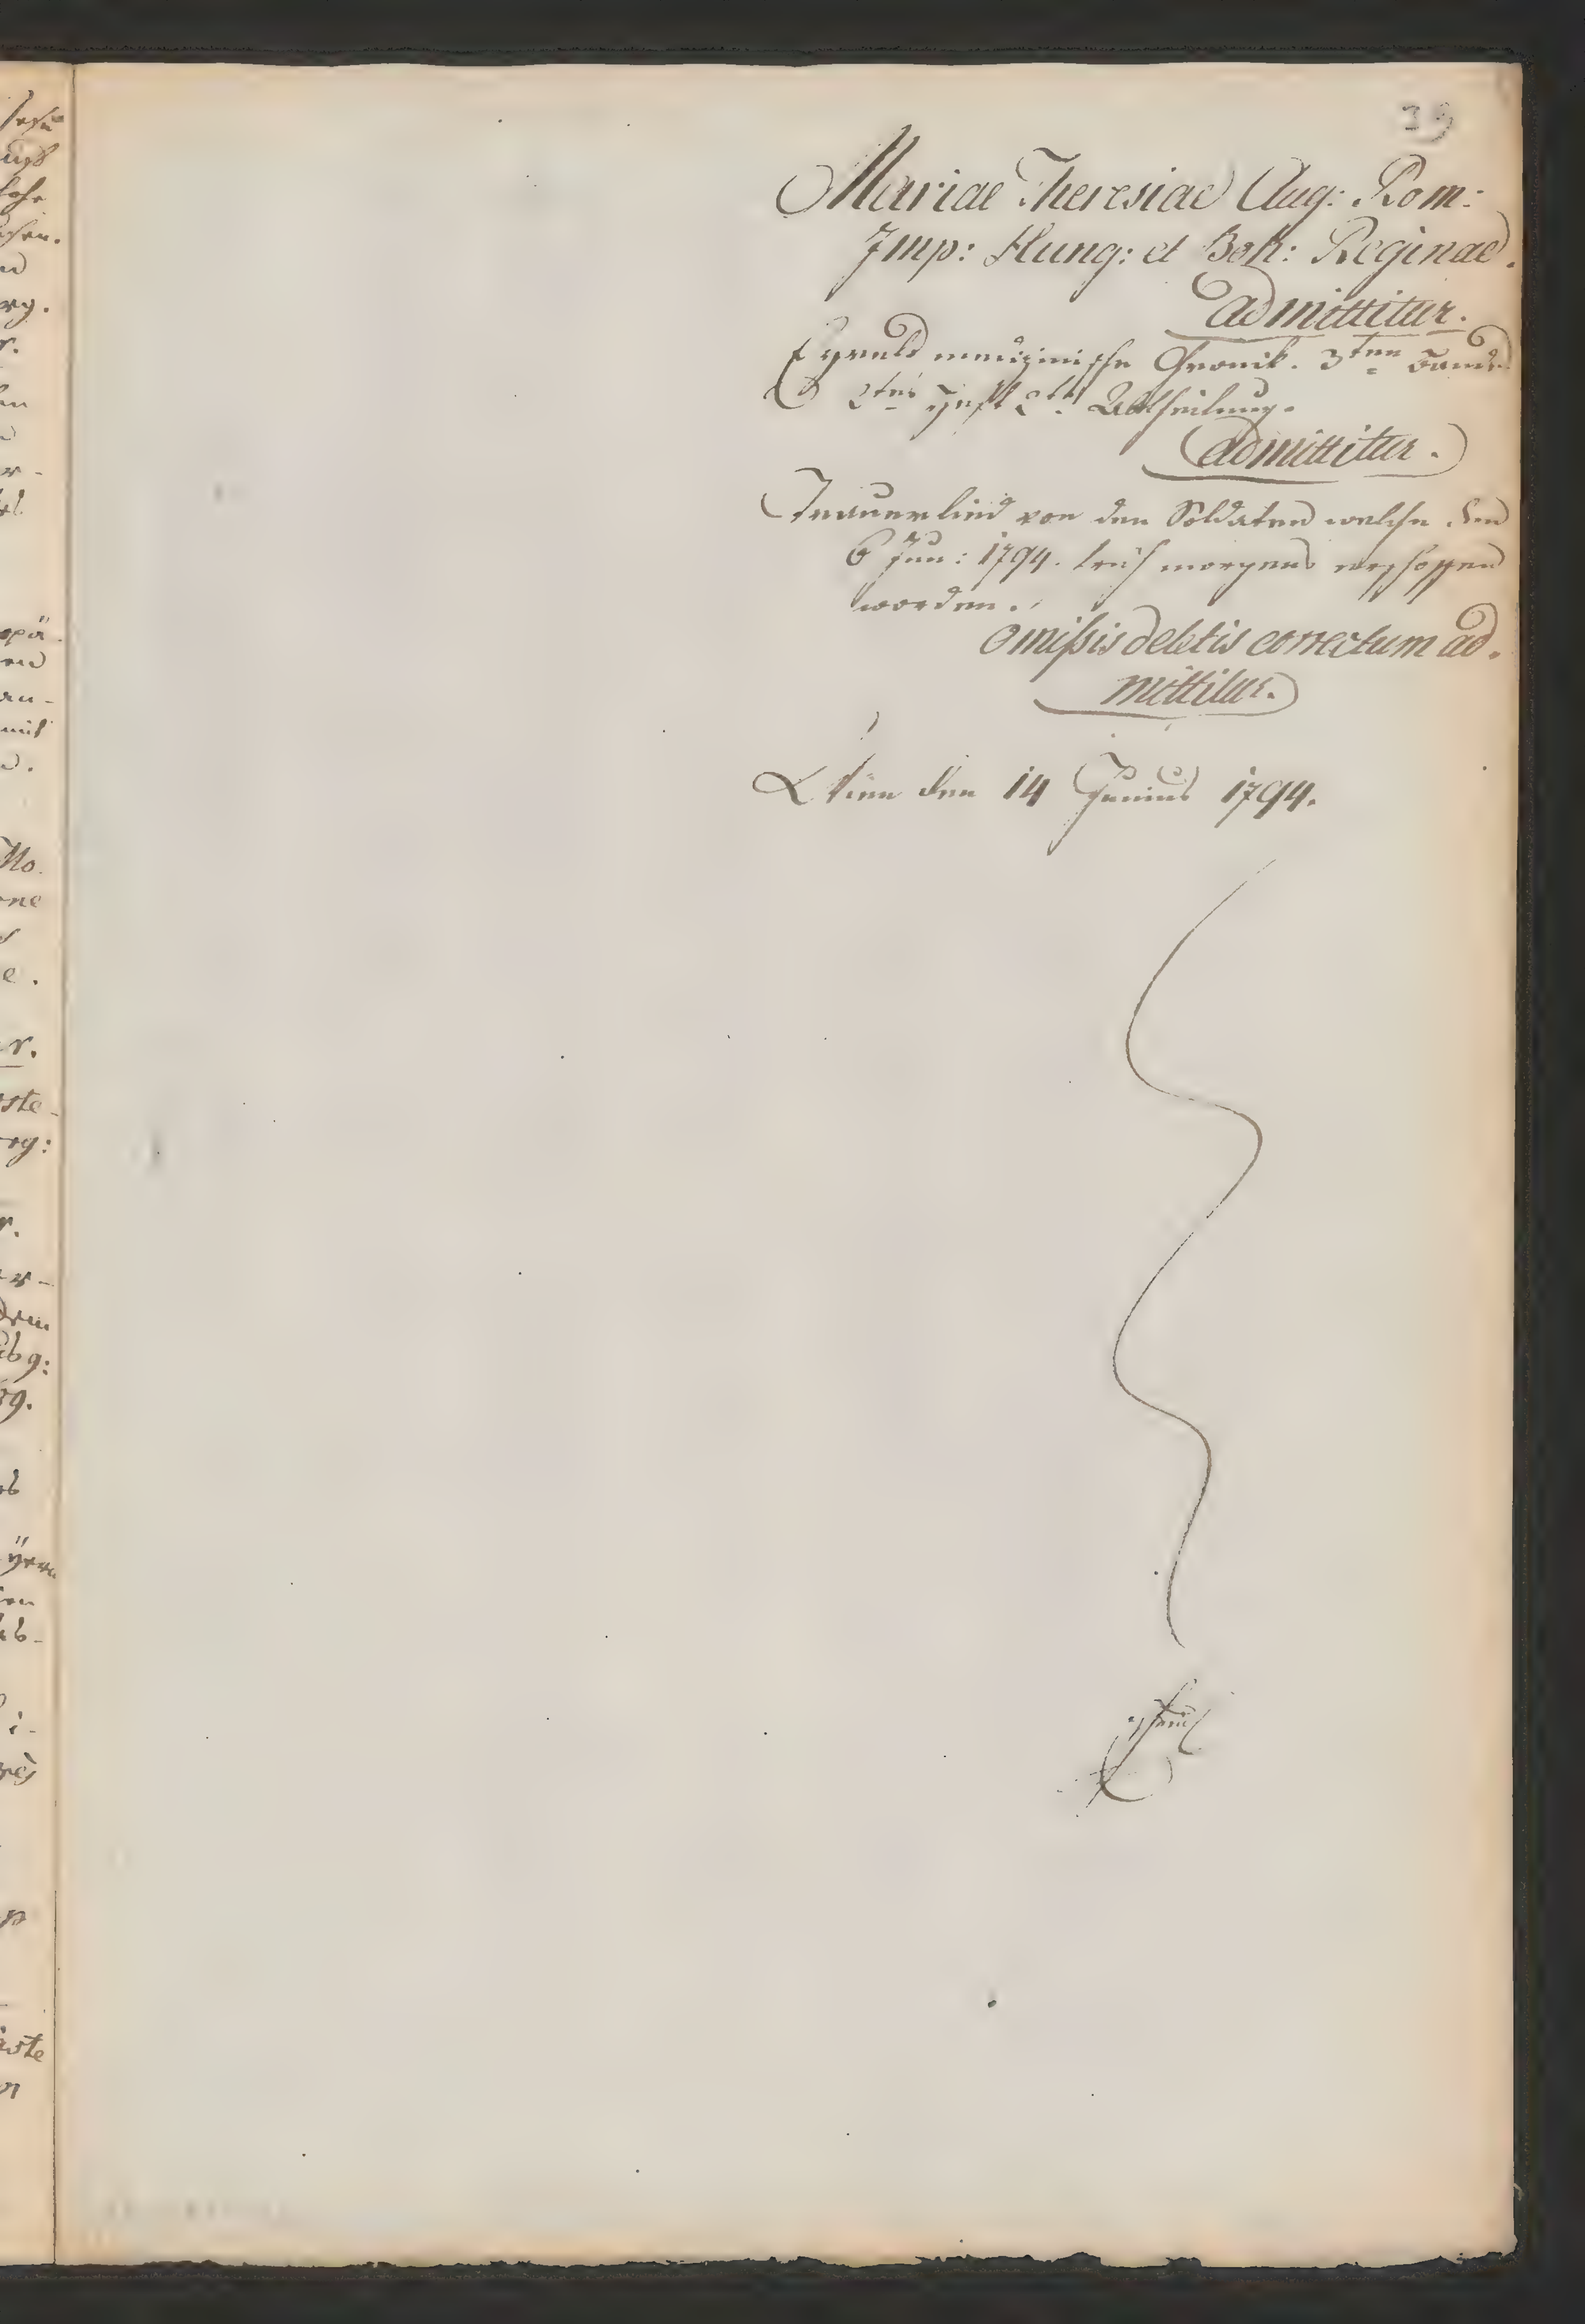 39
Mariae Theresiae Aug: Rom:
Imp: Hung: et Boh: Reginae.
admittitur.
Eyrels medizinische Cronik. 3ten Bandes
2tes Heft 2te Abtheilung.
admittitur.
Trauerlied von den Soldaten welche den
6 Jun: 1794. früh morgens erschossen
worden.
Omißis deletis correctum ad-
mittitur.
Wien den 14 Junius 1794.